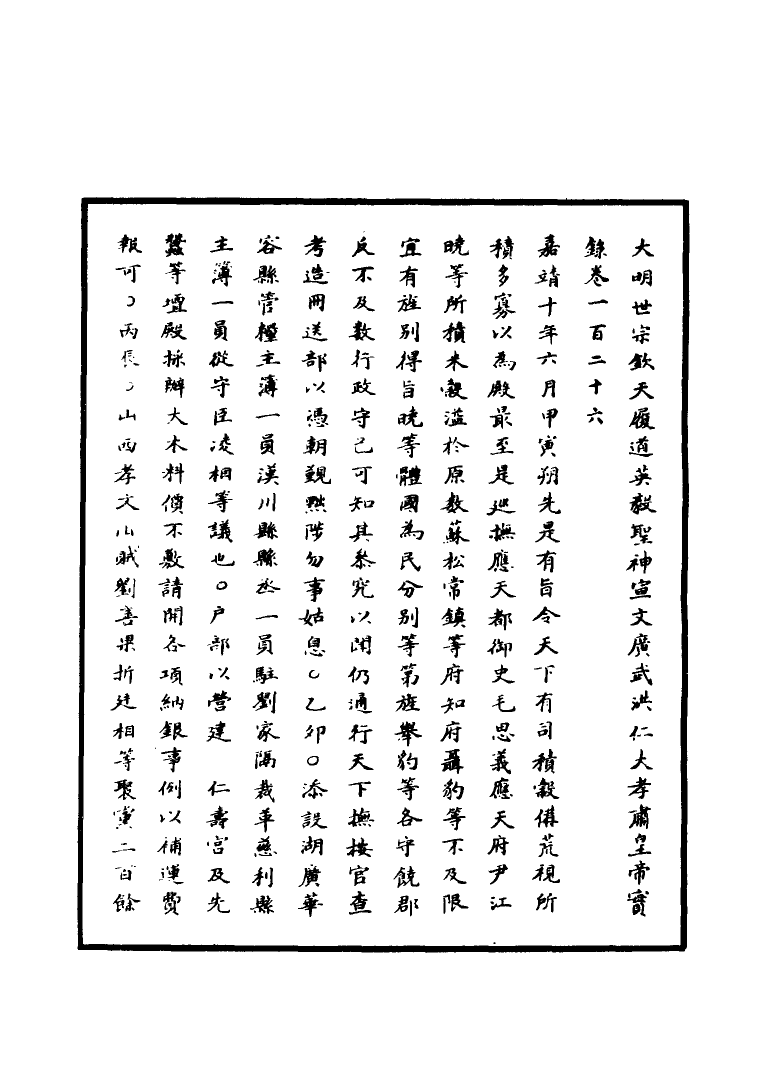 大明世宗欽天履道英毅聖神宣文廣武洪仁大孝肅皇帝寳
錄卷一百二十六
嘉靖十年六月甲寅朔先是有旨令天下有司積穀俻荒視所
積多寡以為殿最至是廵撫應天都御史毛思義應天府尹江
曉等所積米穀溢於原數蘇松常鎮等府知府聶豹等不及限
宜有旌別得旨曉等體國為民分別等第旌舉豹等各守饒郡
反不及數行政守己可知其叅究以聞仍通行天下撫按官查
考造冊送部以憑朝覲黜陟勿事姑息○乙卯○添設湖廣華
容縣管糧主簿一員漢川縣縣丞一員駐劉家隔裁革慈利縣
主簿一員從守臣凌相等議也○户部以營建　仁壽宮及先
蠶等壇殿採辦大木料價不敷請開各項納銀事例以補運費
報可○丙辰○山西孝文山賊劉善果折廷相等聚黨二百餘